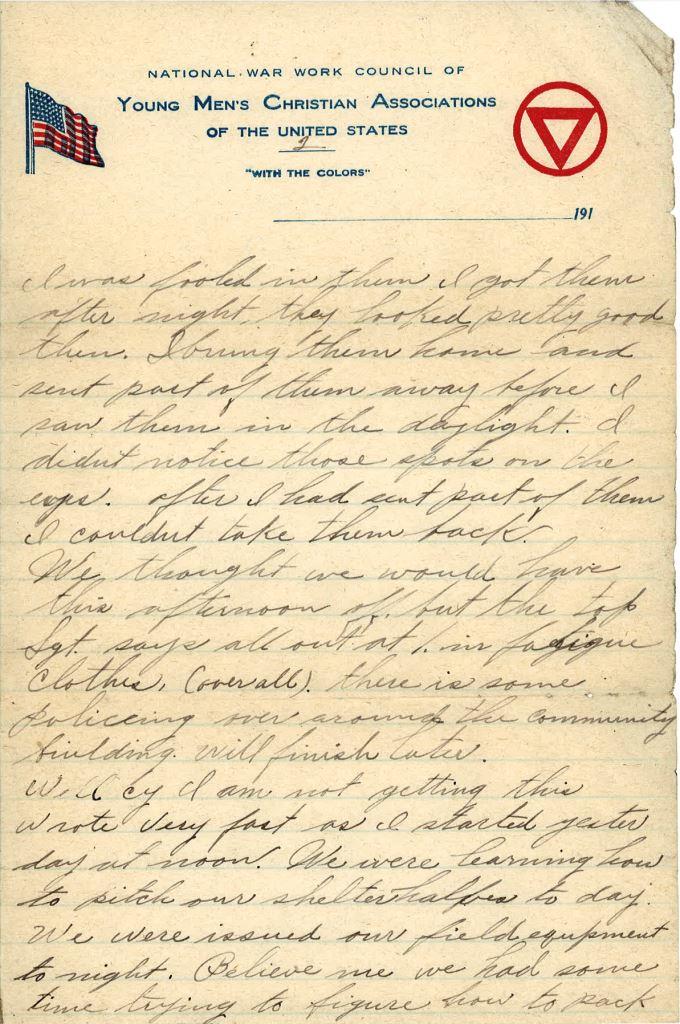 NATIONAL WAR WORK COUNCIL OF
YOUNG MEN'S CHRISTIAN ASSOCIATIONS
OF THE UNITED STATES
2
"WITH THE COLORS"
191
I was fooled in them I got them
after night, they looked pretty good
then. I brung them home and
sent part of them away before I
saw them in the daylight. I
didnt notice those spots on the
eyes. after I had sent part of them
I couldnt take them back.
We thought we would have
this afternoon off. but the top
Sgt. says all out at 1. in fatigue
clothes, (overall). there is some
policeing over around the community
building. will finish later.
Well cy I am not getting this
wrote very fast as I started yester
day at noon. We were learning how
to pitch our shelterhalfes to day.
We were issued our field equpment
to night. Believe me we had some
time trying to figure how to pack